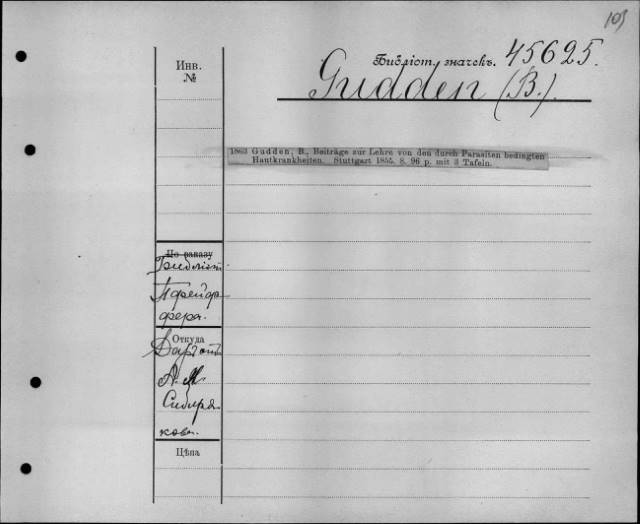 103
Библіот. значекъ. 45625.
Инв.
№
Gudden (B.).
1863 Gudden, B., Beiträge zur Lehre von den durch Parasiten bedingten
Hautkrankheiten. Stuttgart 1855. 8. 96 p. mit 3 Tafeln.
По заказу
Библіот.
Пфейф
фера.
Откуда
Даръ отъ
А. М.
Сибиря
кова.
Цѣна